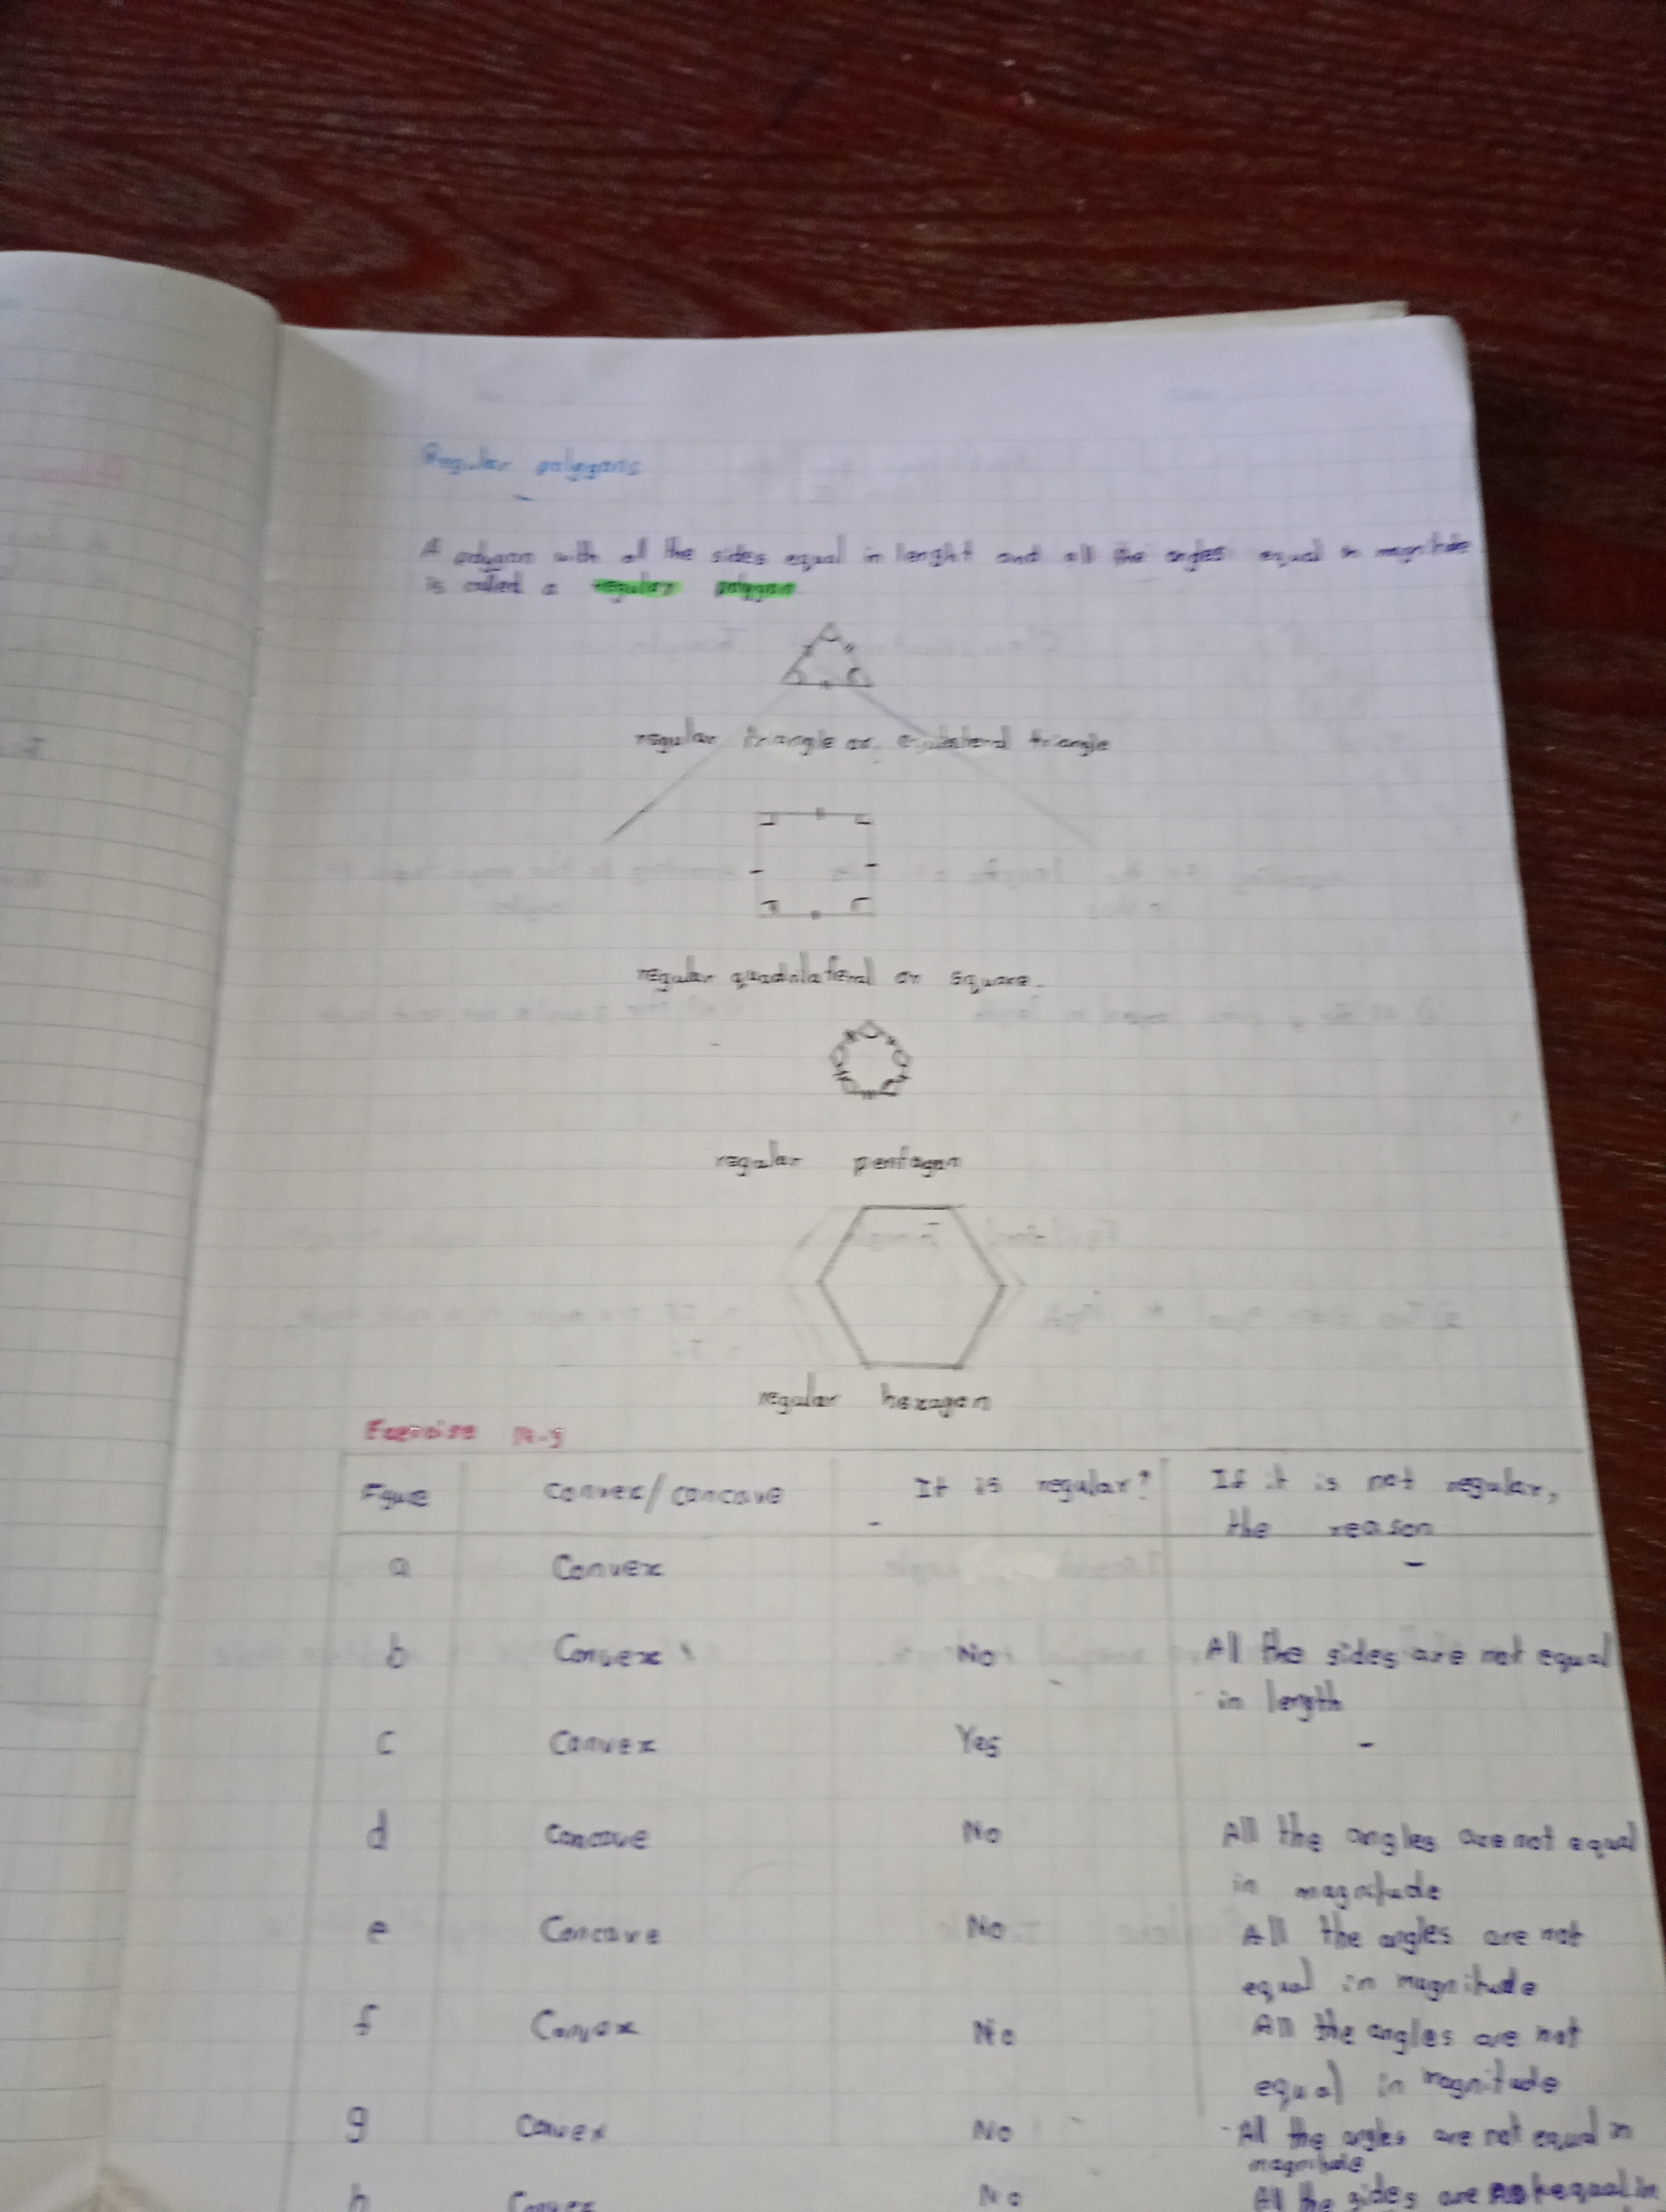 Regular polygons
A polygon with all the sides equal in lenght and all the angles equal in magnitude
is called a regular polygon
regular triangle or equilateral triangle
regular quadrilateral or square.
regular pentagon
regular hexagon
Exercise 14.3
Figure convex/concave It is regular? If it is not regular,
the reason
a Convex -
b Convex No All the sides are not equal
in length
c Convex Yes -
d Concave No All the angles are not equal
in magnitude
e Concave No All the angles are not
equal in magnitude
f Convex No All the angles are not
equal in magnitude
g Convex No All the angles are not equal in
magnitude
h Convex No All the sides are not equal in